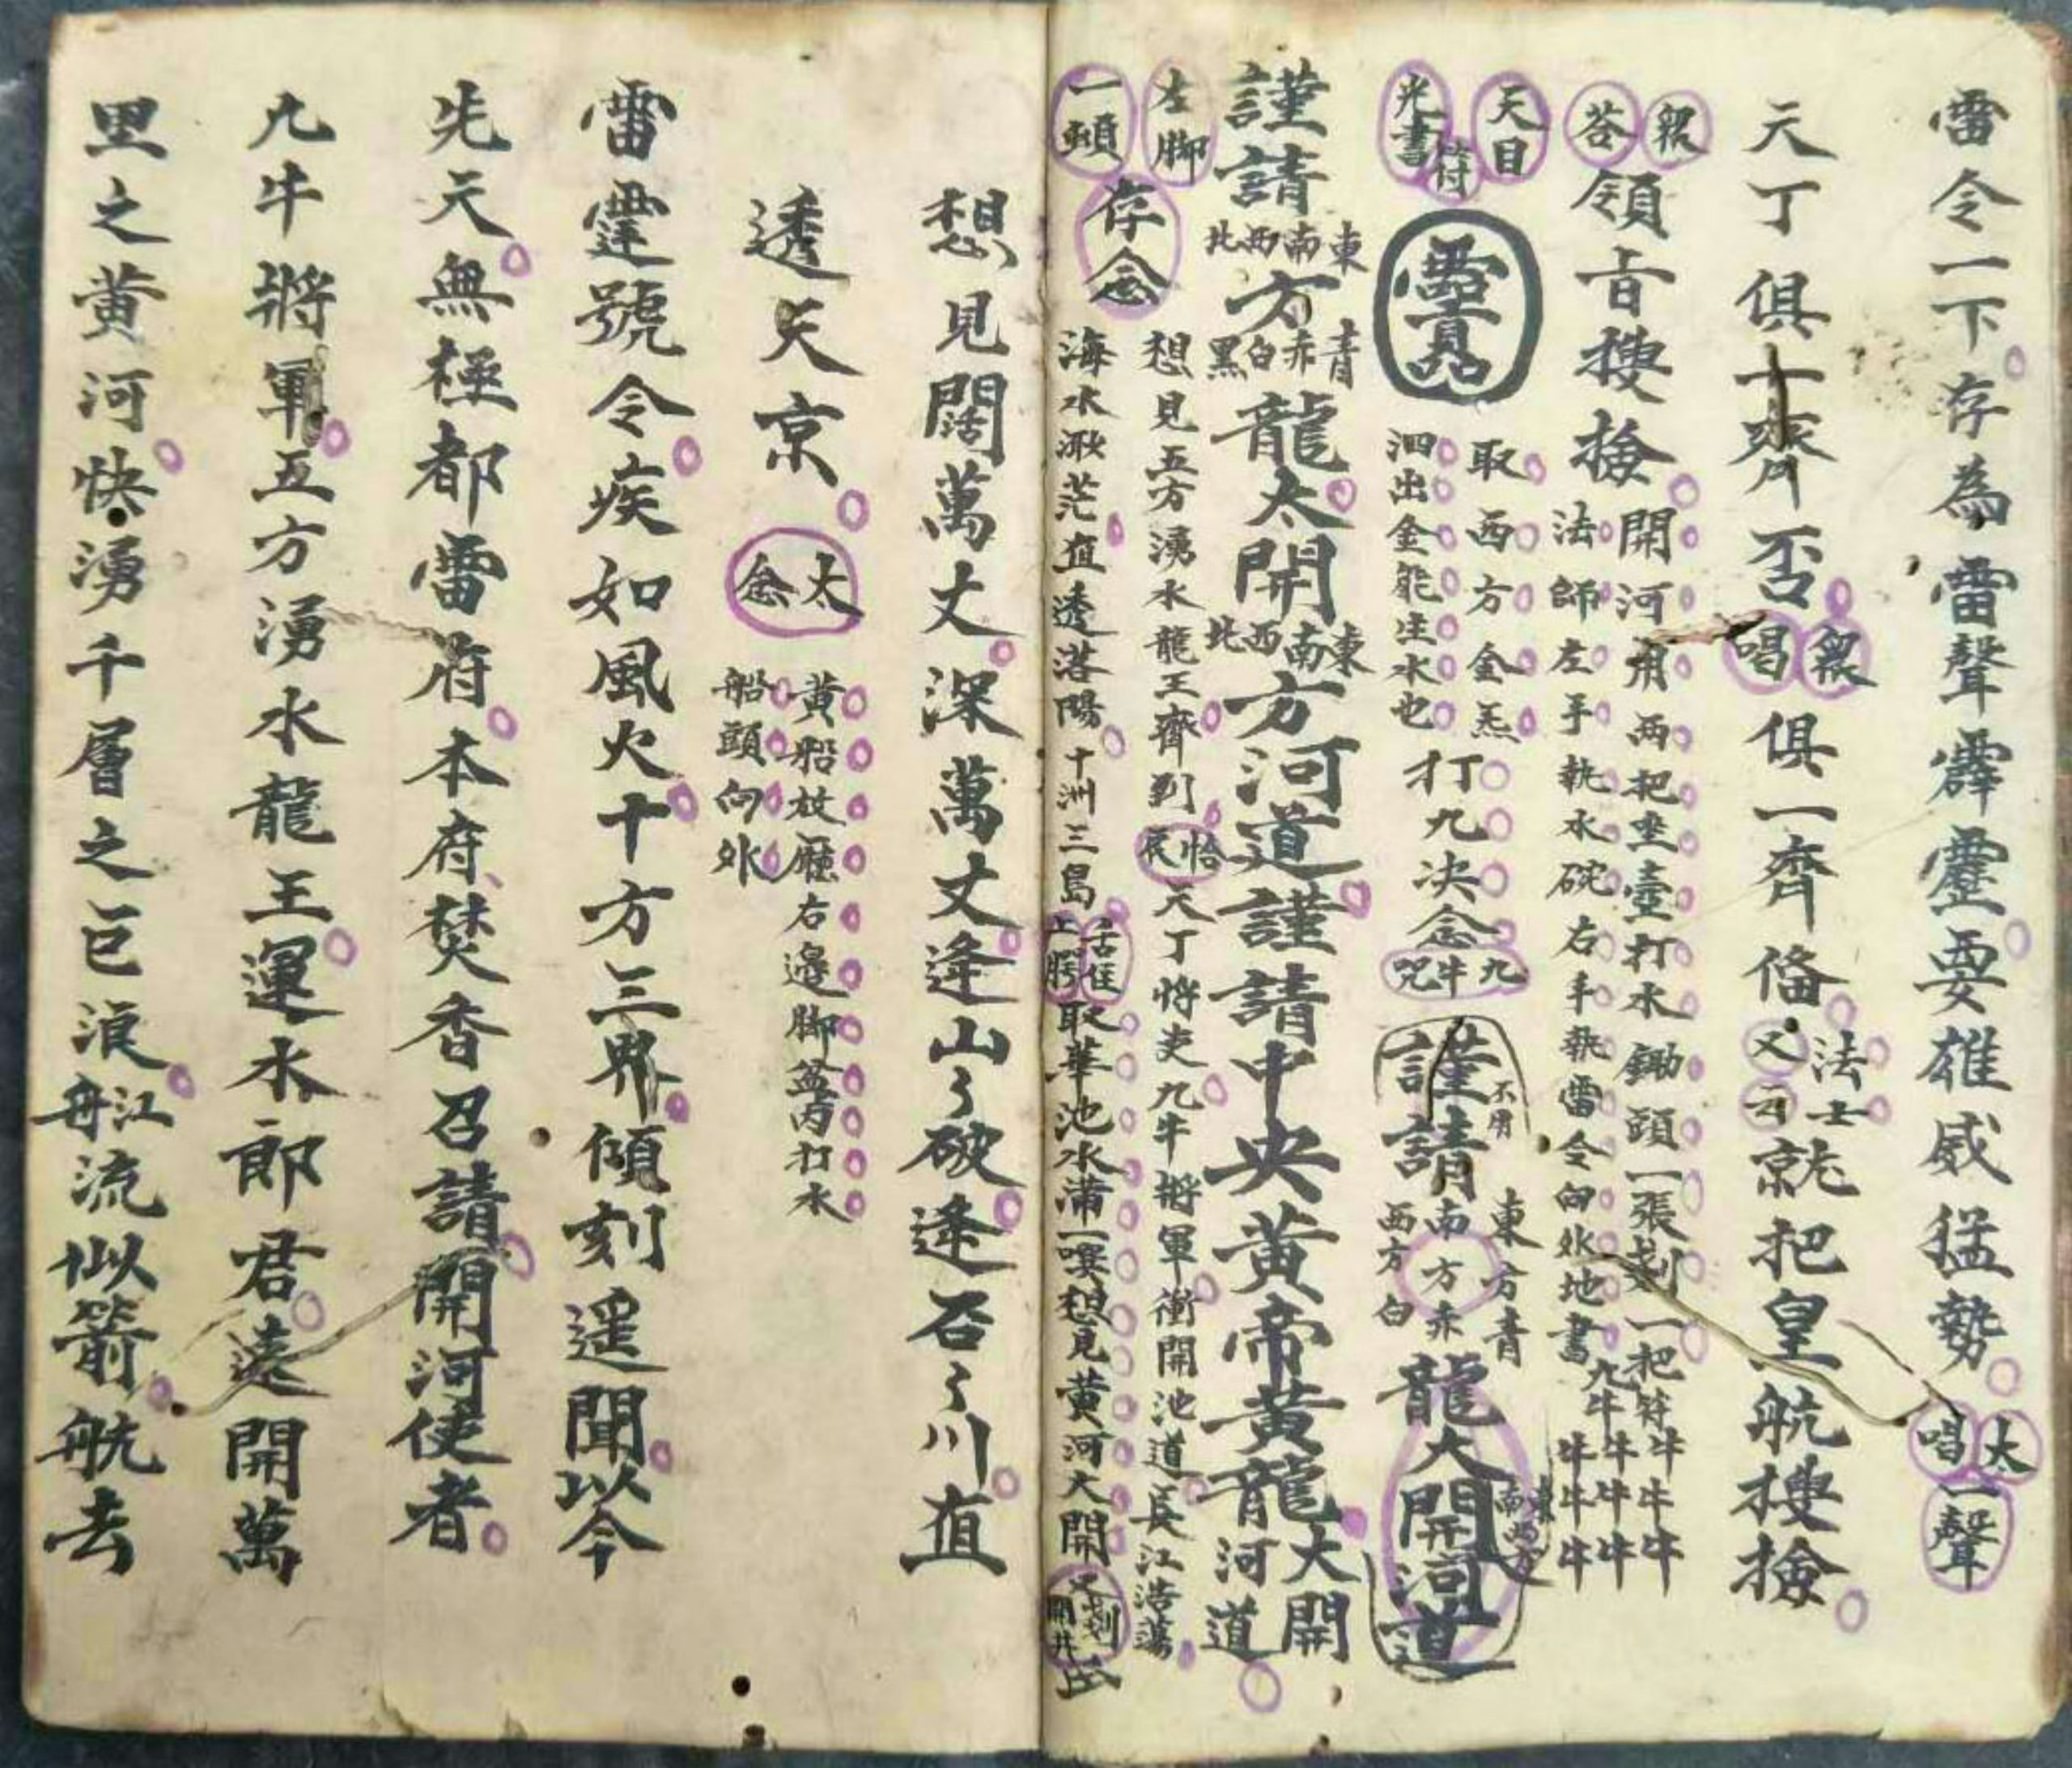 雷令一下存為雷聲霹靂要雄威猛勢太唱一聲
天丁俱十齊否衆唱俱一齊俻法士又云就把皇航搜撿
衆答領旨搜撿
開河用两把坐壺打水鋤頭一張剗一把符
法師左手執水碗右手執雷令向外地書九牛
牛牛牛牛牛牛牛牛
天目
光書符
取西方金炁
泗出金能生水也
打九决念九牛咒
謹請不用東方青南方赤西方白龍大開東南西方河道
謹請東南西北方青赤白黑龍太開東南西北方河道謹請中央黃帝黃龍大開河道
左脚
一頓
存念
想見五方湧水龍王齊到恰辰天丁將吏九牛將軍衝開池道長江浩蕩
海水淼茫直透洛陽十洲三島舌住上腭取華池水滿一噀想見黃河大開
想見闊萬丈深萬丈逢山〻破逢石〻川直
透天京太念
黃船放廳右邉脚盆内打水
船頭向外
雷霆號令疾如風火十方三界傾刻遥聞以今
先天無極都雷府本府焚香召請開河使者
九牛將軍五方湧水龍王運水郎君遠開萬
里之黃河快湧千層之巨浪江舟流似箭航去